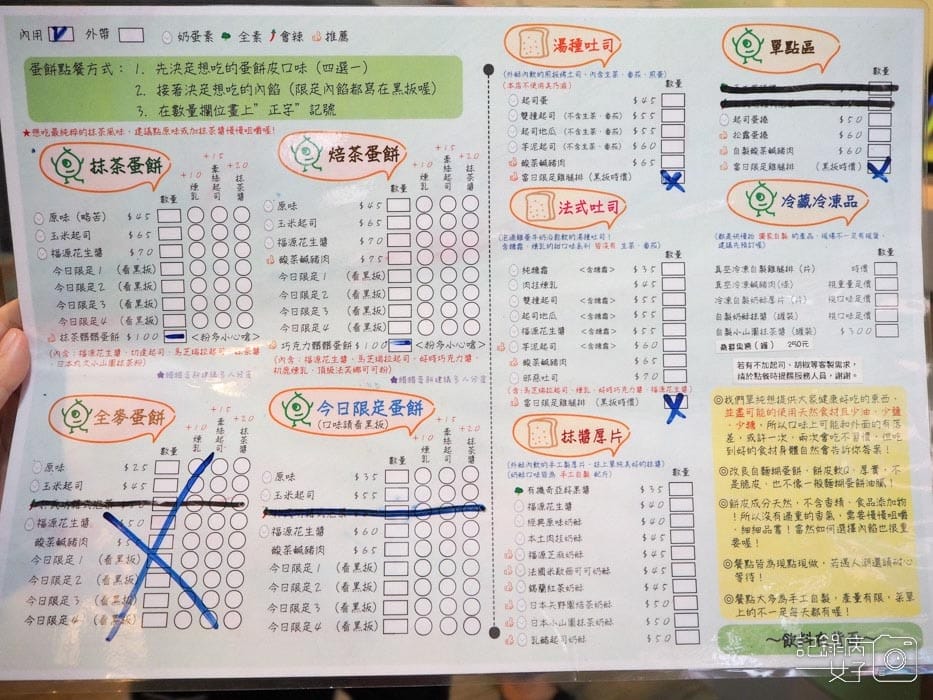 內用 外帶 奶蛋素 全素 會辣 推薦
蛋餅點餐方式： 1. 先決定想吃的蛋餅皮口味（四選一）
2. 接著決定想吃的內餡（限定內餡都寫在黑板喔）
3. 在數量欄位畫上"正字"記號
★想吃最純粹的抹茶風味，建議點原味或加抹茶醬慢慢咀嚼喔！
抹茶蛋餅
數量 +10 煉乳 +15 牽絲起司 +20 抹茶醬
原味（略苦） $45
玉米起司 $65
福源花生醬 $70
今日限定1（看黑板）
今日限定2（看黑板）
今日限定3（看黑板）
今日限定4（看黑板）
抹茶髒髒蛋餅 $100 <粉多小心嗆>
焙茶蛋餅
數量 +10 煉乳 +15 牽絲起司 +20 抹茶醬
原味 $45
玉米起司 $65
福源花生醬 $70
酸菜鹹豬肉 $75
今日限定1（看黑板）
今日限定2（看黑板）
今日限定3（看黑板）
今日限定4（看黑板）
巧克力髒髒蛋餅 $100 <粉多小心嗆>
全麥蛋餅
數量 +10 煉乳 +15 牽絲起司 +20 抹茶醬
原味 $25
玉米起司 $45
福源花生醬 $50
酸菜鹹豬肉
今日限定1（看黑板）
今日限定2（看黑板）
今日限定3（看黑板）
今日限定4（看黑板）
今日限定蛋餅
（口味請看黑板）
數量 +10 煉乳 +15 牽絲起司 +20 抹茶醬
原味 $35
玉米起司 $55
福源花生醬 $60
酸菜鹹豬肉 $65
今日限定1（看黑板）
今日限定2（看黑板）
今日限定3（看黑板）
今日限定4（看黑板）
湯種吐司
（外酥內軟的煎板烤土司，內含生菜、番茄、煎蛋）
（本店不使用美乃滋）
數量
起司蛋 $45
雙種起司（不含生菜、番茄） $55
起司地瓜（不含生菜、番茄） $55
芋泥起司（不含生菜、番茄） $60
酸菜鹹豬肉 $65
當日限定雞腿排（黑板時價）
法式吐司
數量
純糖霜 <含糖霜> $35
肉桂煉乳 $45
雙種起司 <含糖霜> $55
起司地瓜 <含糖霜> $55
福源花生醬 <含糖霜> $55
芋泥起司 <含糖霜> $60
酸菜鹹豬肉 $65
邪惡吐司 $70
當日限定雞腿排（黑板時價）
抹醬厚片
（外酥內軟的手工製厚片，抹上單純美好的抹醬）
（奶酥口味皆為 手工自製 配方）
數量
有機奇亞籽果醬 $35
福源花生醬 $40
經典原味奶酥 $40
本土肉桂奶酥 $45
福源芝麻奶酥 $45
法國米歇爾可可奶酥 $45
錫蘭紅茶奶酥 $45
日本矢野園焙茶奶酥 $50
日本小山園抹茶奶酥 $50
乳酪起司奶酥 $50
單點區
數量
起司蛋捲 $50
松露蛋捲 $60
自製酸菜鹹豬肉 $60
當日限定雞腿排（黑板時價）
冷藏冷凍品
數量
真空冷凍自製雞腿排（片） 時價
真空冷凍鹹豬肉（條） 視重量定價
冷凍自製奶酥厚片（片） 視口味定價
自製奶酥抹醬（罐裝） 視口味定價
自製小山園抹茶醬（罐裝） $300
若有不加起司、胡椒等客製需求，
請於點餐時提醒服務人員，謝謝。
◎我們單純想提供大家健康好吃的東西，
並盡可能的使用天然食材且少油、少鹽
、少糖，所以口味上可能和外面的有落
差，或許一次，兩次會吃不習慣，但吃
到好的食材身體自然會告訴你答案！
◎改良自麵糊蛋餅，餅皮軟Q、厚實，不
是脆皮，也不像一般麵糊蛋餅油膩！
◎餅皮成分天然，不含香精、食品添加物
！所以沒有過重的香氣，需要慢慢咀嚼
、細細品嘗！當然如何選擇內餡也很重
要喔！
◎餐點皆為現點現做，若遇人潮還請耐心
等待！
◎餐點大多為手工自製，產量有限，菜單
上的不一定每天都有喔！